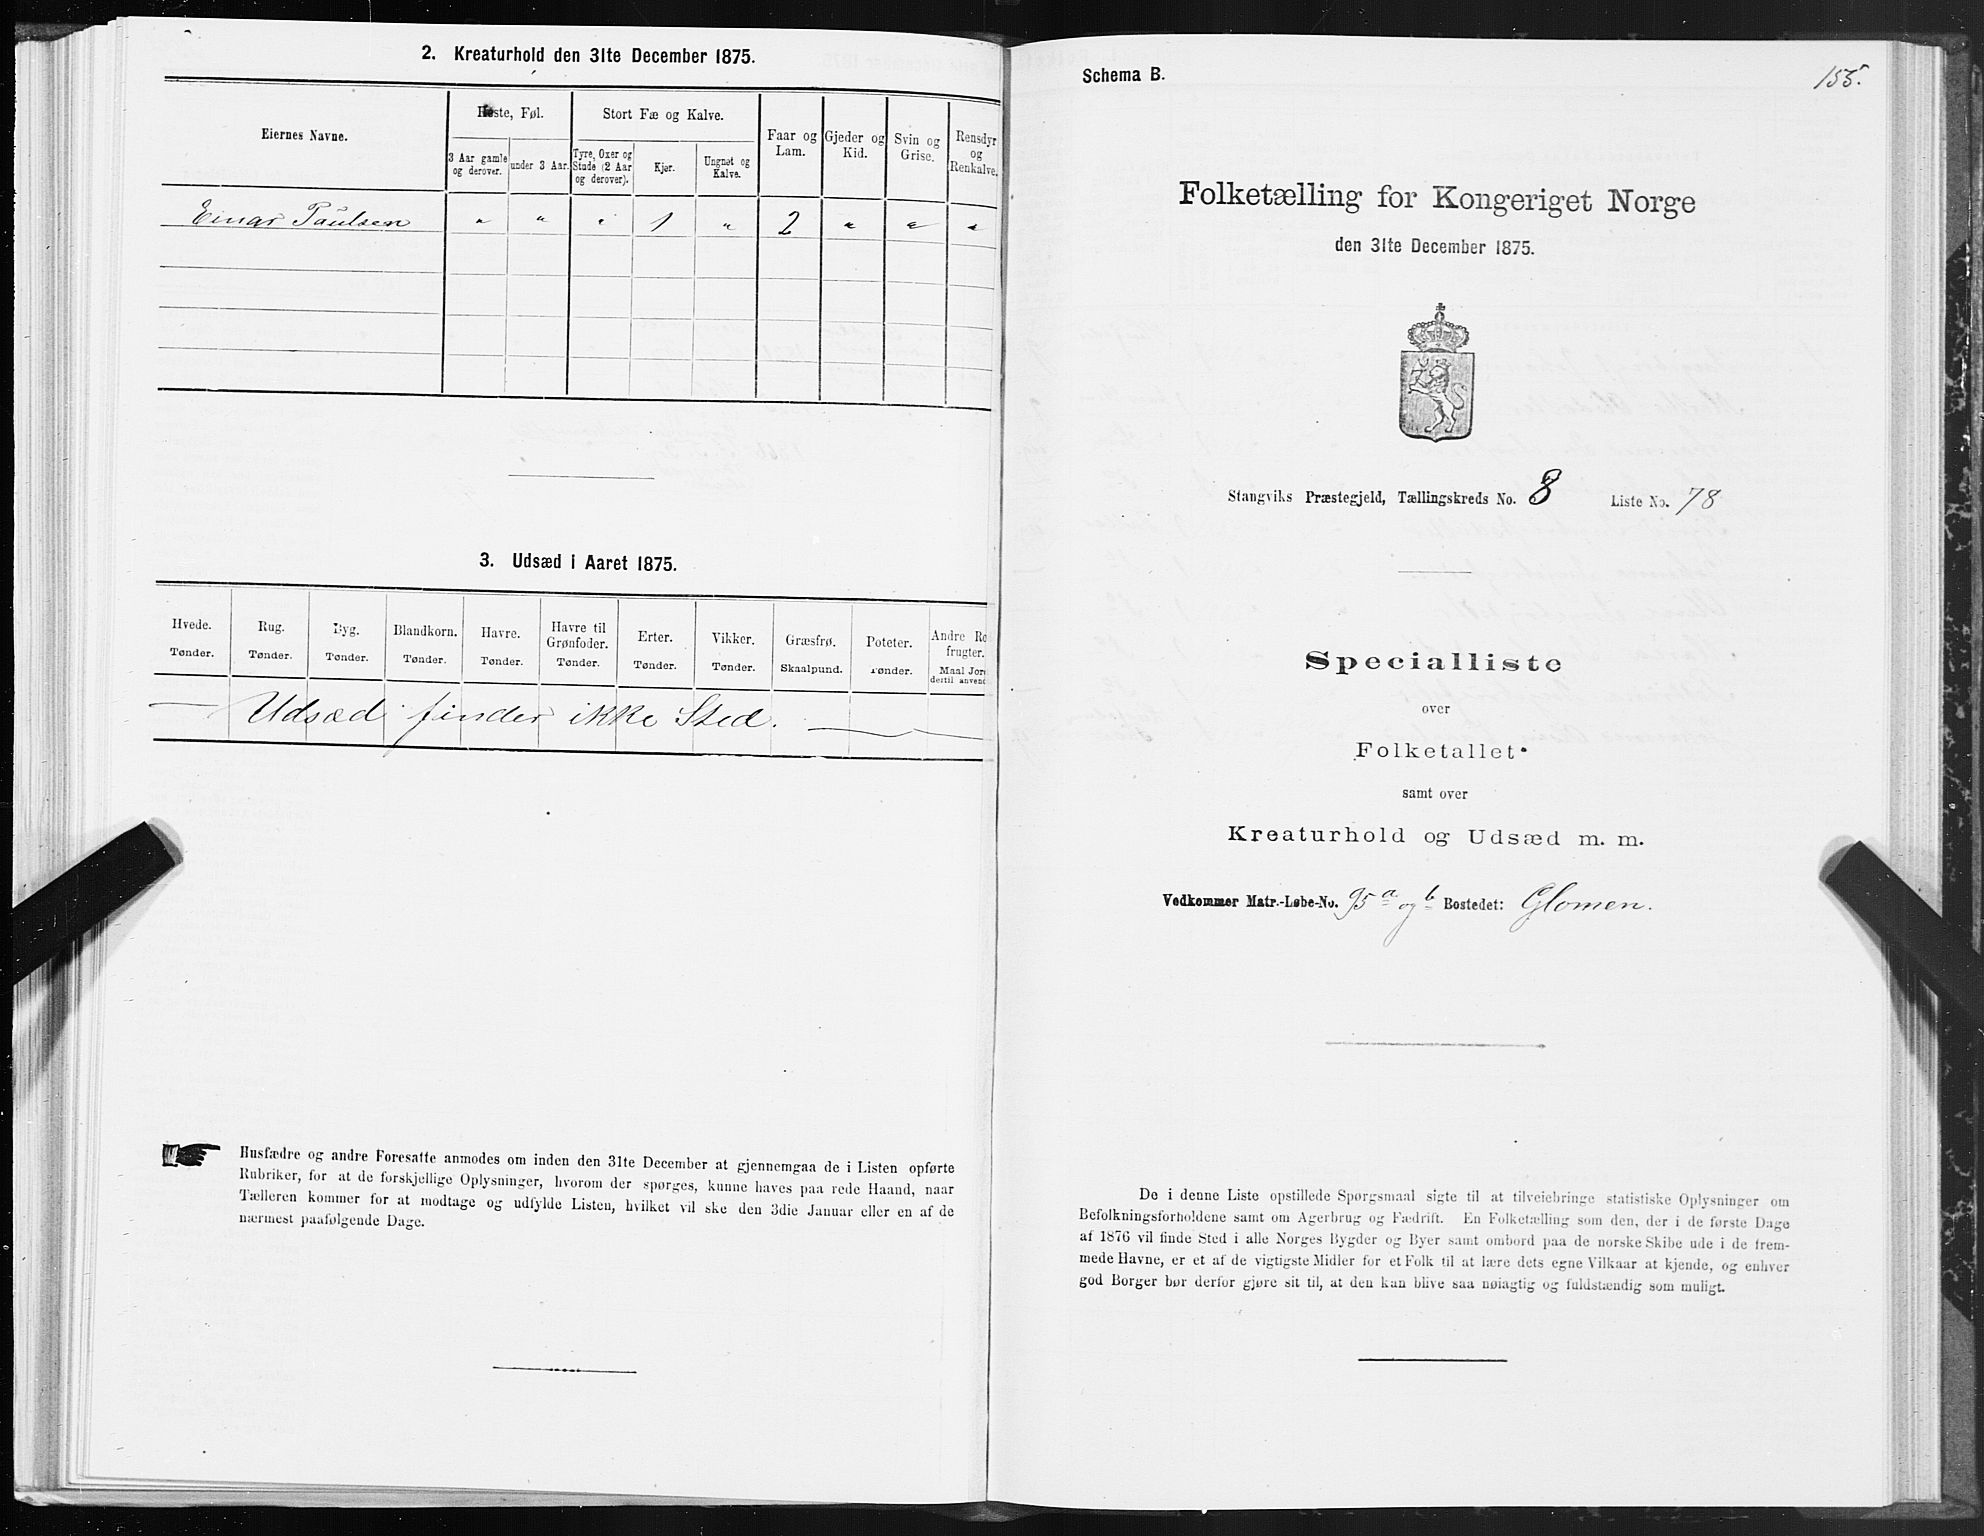 2. Kreaturhold den 31te December 1875.
Eiernes Navne.
Heste, Føl.
Stort Fæ og Kalve.
Faar og Lam.
Gjeder og Kid.
Svin og Grise.
Rensdyr og Renkalve.
3 Aar gamle og derover.
under 3 Aar.
Tyre, Oxer og Stude (2 Aar og derover).
Kjør.
Ungnøt og Kalve.
Einar Paulsen " " " 1 " 2 " " "
3. Udsæd i Aaret 1875.
Hvede. Rug. Byg. Blandkorn. Havre. Havre til Grønfoder. Erter. Vikker. Græsfrø. Poteter. Andre Ro frugter.
Tønder. Tønder. Tønder. Tønder. Tønder. Tønder. Tønder. Tønder. Skaalpund. Tønder. Maal Jord dertil anvend
— Udsæd finder ikke Sted. —
Husfædre og andre Foresatte anmodes om inden den 31te December at gjennemgaa de i Listen opførte
Rubriker, for at de forskjellige Oplysninger, hvorom der spørges, kunne haves paa rede Haand, naar
Tælleren kommer for at modtage og udfylde Listen, hvilket vil ske den 3die Januar eller en af de
nærmest paafølgende Dage.
Schema B.
155.
Folketælling for Kongeriget Norge
den 31te December 1875.
Stangviks Præstegjeld, Tællingskreds No. 8 Liste No. 78
Specialliste
over
Folketallet
samt over
Kreaturhold og Udsæd m. m.
Vedkommer Matr.-Løbe-No. 95 a og b Bostedet: Glomen.
De i denne Liste opstillede Spørgsmaal sigte til at tilveiebringe statistiske Oplysninger om
Befolkningsforholdene samt om Agerbrug og Fædrift. En Folketælling som den, der i de første Dage
af 1876 vil finde Sted i alle Norges Bygder og Byer samt ombord paa de norske Skibe ude i de frem-
mede Havne, er et af de vigtigste Midler for et Folk til at lære dets egne Vilkaar at kjende, og enhver
god Borger bør derfor gjøre sit til, at den kan blive saa nøiagtig og fuldstændig som muligt.